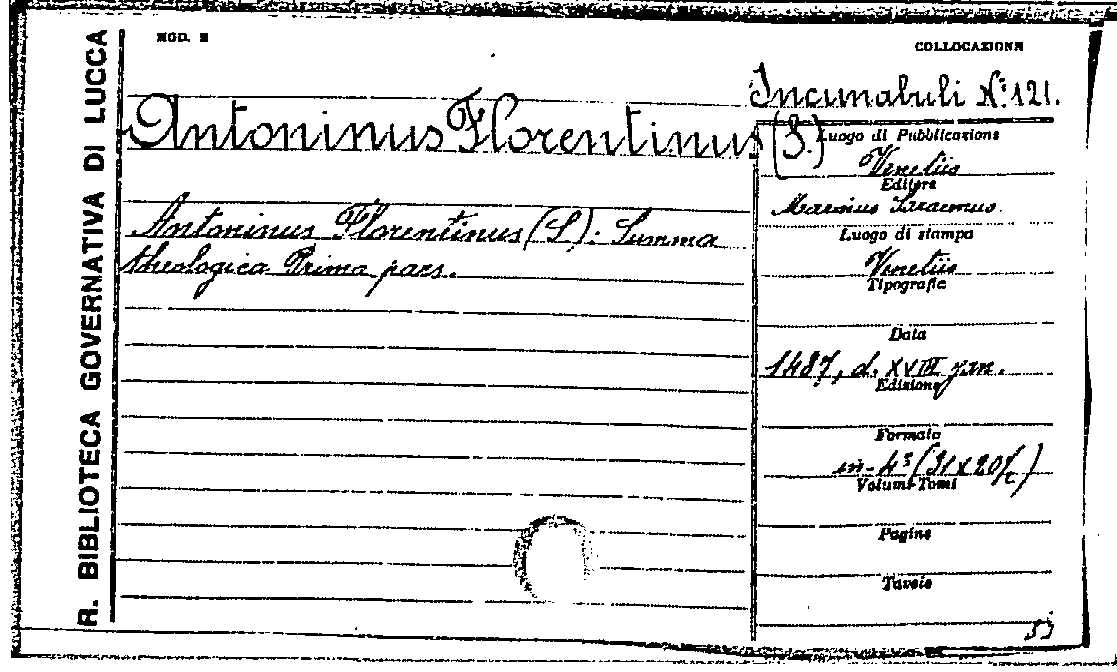 R. BIBLIOTECA GOVERNATIVA DI LUCCA
MOD. E
COLLOCAZIONE
Incunabuli N.º 121.
Antoninus Florentinus (S.)
Antoninus Florentinus (S.): Summa
theologica Prima pars.
Luogo di Pubblicazione
Venetiis
Editore
Luogo di stampa
Venetiis
Tipografia
Data
1487, d. XVIII jan.
Edizione
Formato
in-4º (31x20/c)
Volumi-Tomi
Pagine
Tavole